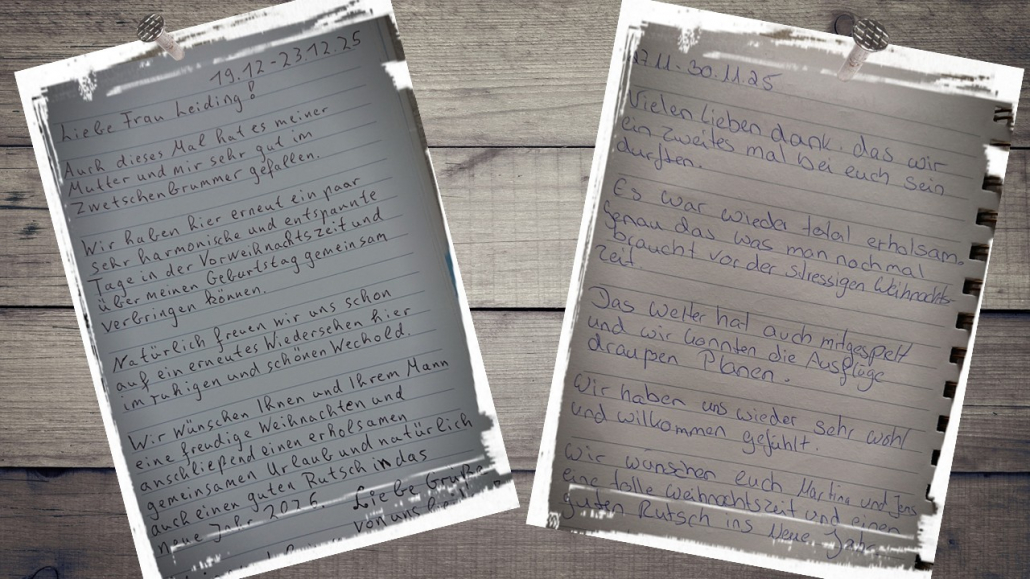 19.12-23.12.25
Liebe Frau Leiding!
Auch dieses Mal hat es meiner
Mutter und mir sehr gut im
Zwetschenbrummer gefallen.
Wir haben hier erneut ein paar
sehr harmonische und entspannte
Tage in der Vorweihnachtszeit und
über meinen Geburtstag gemeinsam
verbringen können.
Natürlich freuen wir uns schon
auf ein erneutes Wiedersehen hier
im ruhigen und schönen Wechold.
Wir wünschen Ihnen und Ihrem Mann
eine freudige Weihnachten und
anschließend einen erholsamen
gemeinsamen Urlaub und natürlich
auch einen guten Rutsch in das
neue Jahr 2026. Liebe Grüße
von uns
27.11-30.11.25
Vielen lieben dank, das wir
ein zweites mal bei euch sein
durften.
Es war wieder total erholsam.
Genau das was man nochmal
braucht vor der stressigen Weihnachts-
zeit
Das Wetter hat auch mitgespielt
und wir konnten die Ausflüge
draußen Planen.
Wir haben uns wieder sehr wohl
und willkommen gefühlt.
Wir wünschen euch Martina und Jens
eine tolle Weihnachtszeit und einen
guten Rutsch ins Neue Jahr.